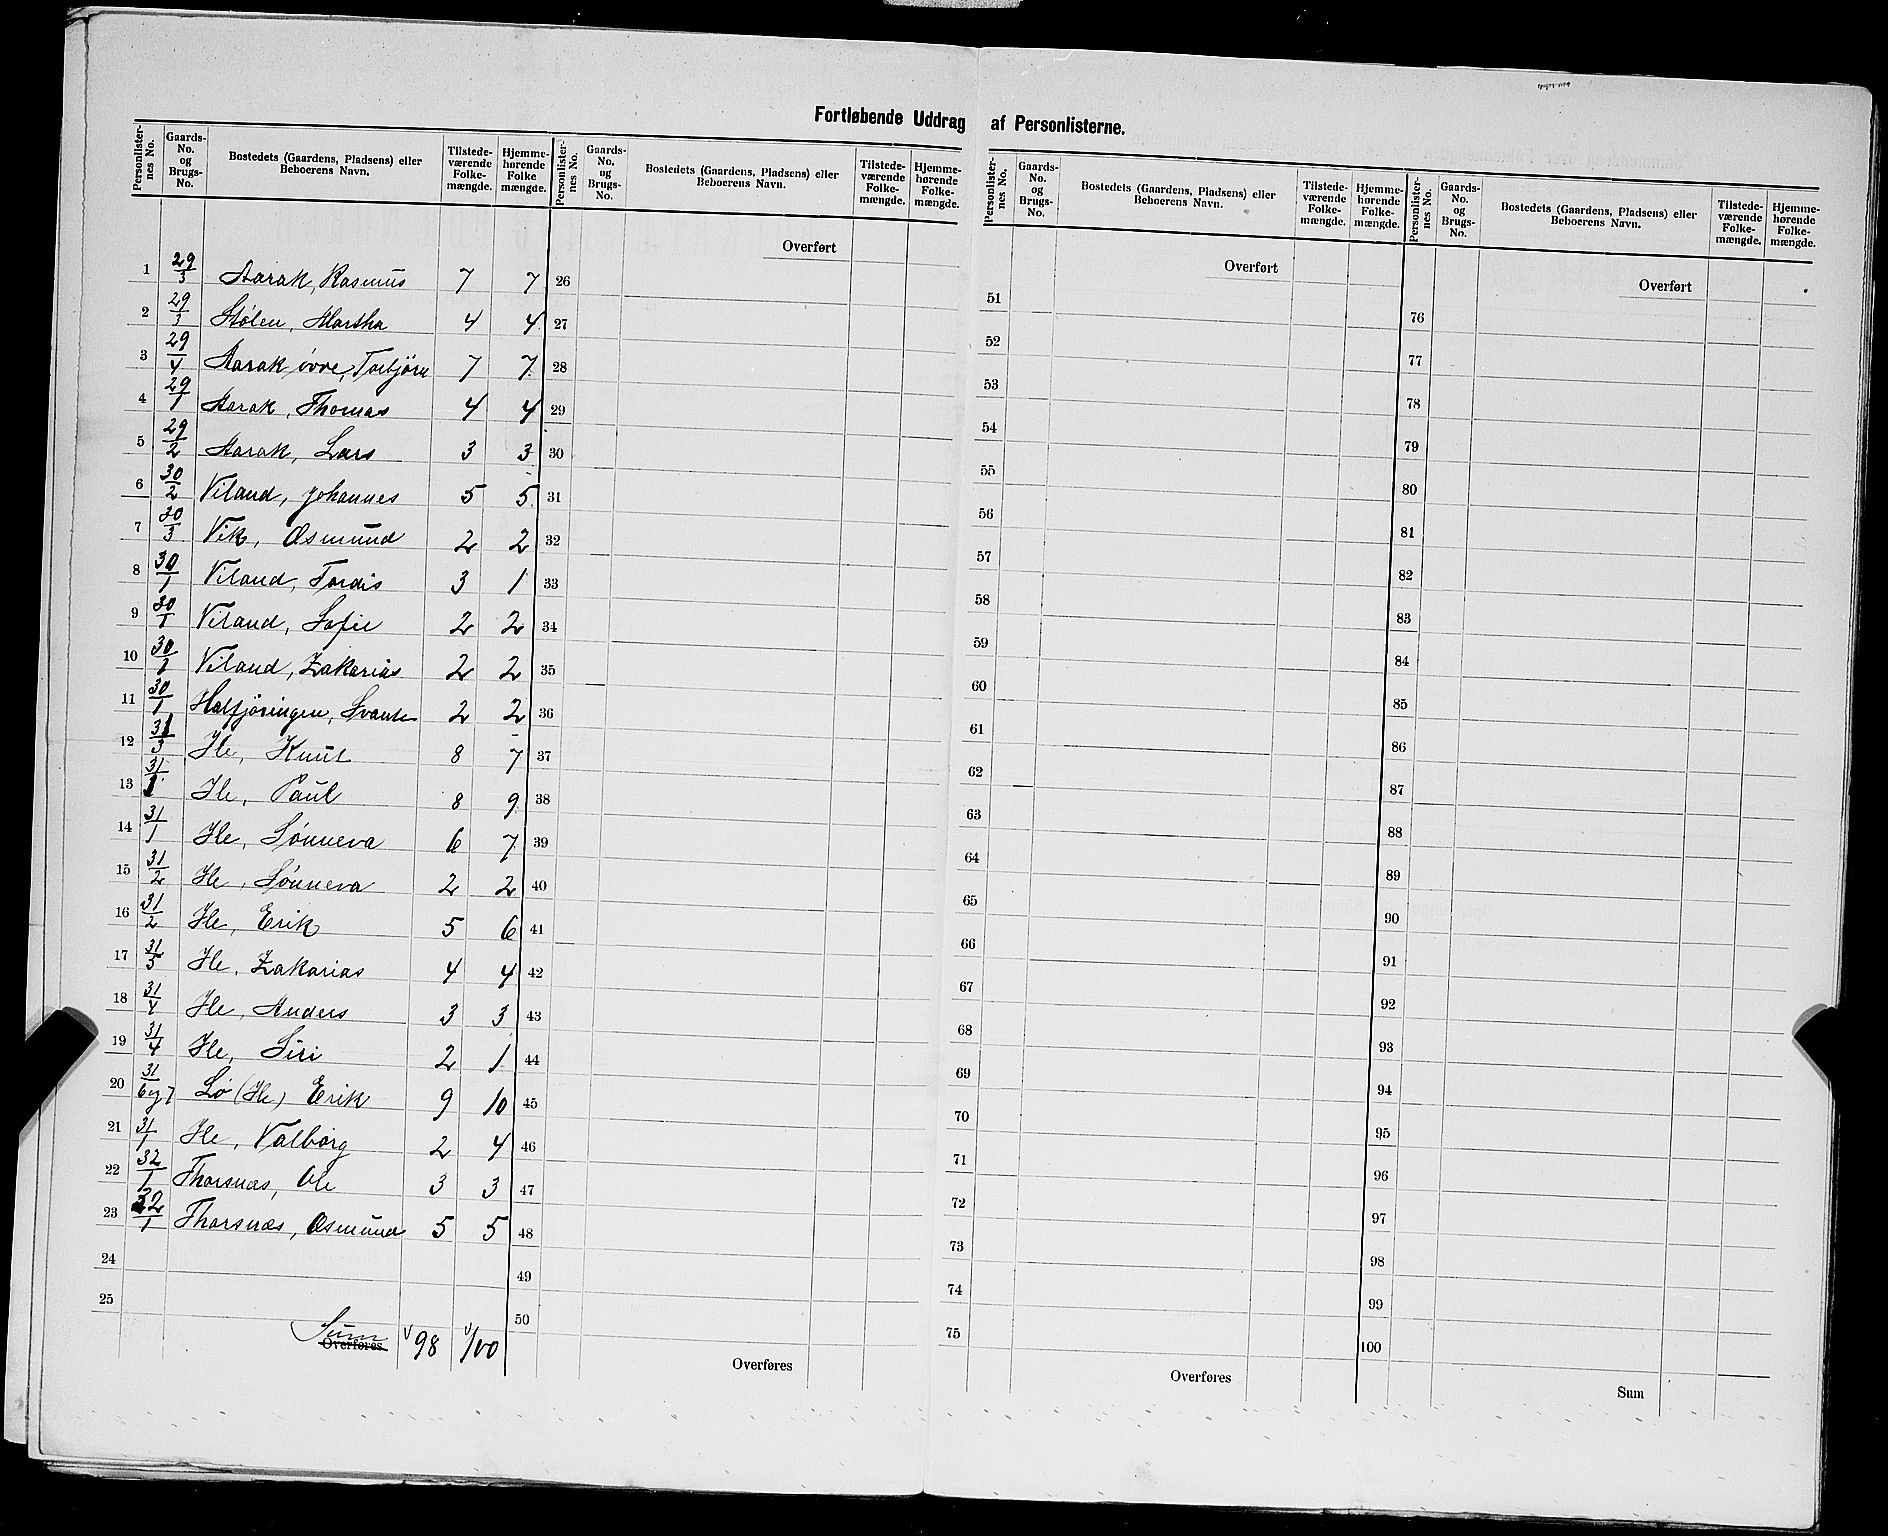 Fortløbende Uddrag af Personlisterne.
Personlister- nes No. | Gaards- No. og Brugs- No. | Bostedets (Gaardens, Pladsens) eller Beboerens Navn. | Tilstede- værende Folke- mængde. | Hjemme- hørende Folke mængde.
1 29/3 Aarak, Rasmus 7 7
2 29/3 Stølen, Martha 4 4
3 29/4 Aarak övre, Torbjörn 7 7
4 29/1 Aarak, Thomas 4 4
5 29/2 Aarak, Lars 3 3
6 30/2 Viland, Johannes 5 5
7 30/3 Vik, Osmund 2 2
8 30/1 Viland, Tordis 3 1
9 30/1 Viland, Sofie 2 2
10 30/1 Viland, Zakarias 2 2
11 30/1 Halfjøringen, 2 2
12 31/3 Ile, Knut 8 7
13 31/1 Ile, Paul 8 9
14 31/1 Ile, Sønneva 6 7
15 31/2 Ile, Sønneva 2 2
16 31/2 Ile, Erik 5 6
17 31/5 Ile, Zakarias 4 4
18 31/4 Ile, Anders 3 3
19 31/4 Ile, Siri 2 1
20 31/6 og 7 Lø (Ile) Erik 9 10
21 31/1 Ile, Valborg 2 4
22 32/1 Thorsnæs, Ole 3 3
23 32/1 Thorsnæs, Osmund 5 5
24
25
Sum Overføres 98 100
Personlister- nes No. | Gaards- No. og Brugs- No. | Bostedets (Gaardens, Pladsens) eller Beboerens Navn. | Tilstede- værende Folke- mængde. | Hjemme- hørende Folke- mængde.
Overført
26
27
28
29
30
31
32
33
34
35
36
37
38
39
40
41
42
43
44
45
46
47
48
49
50
Overføres
Personlister- nes No. | Gaards- No. og Brugs- No. | Bostedets (Gaardens, Pladsens) eller Beboerens Navn. | Tilstede- værende Folke- mængde. | Hjemme- hørende Folke- mængde.
Overført
51
52
53
54
55
56
57
58
59
60
61
62
63
64
65
66
67
68
69
70
71
72
73
74
75
Overføres
Personlister- nes No. | Gaards- No. og Brugs- No. | Bostedets (Gaardens, Pladsens) eller Beboerens Navn. | Tilstede- værende Folke- mængde. | Hjemme- hørende Folke- mængde.
Overført
76
77
78
79
80
81
82
83
84
85
86
87
88
89
90
91
92
93
94
95
96
97
98
99
100
Sum